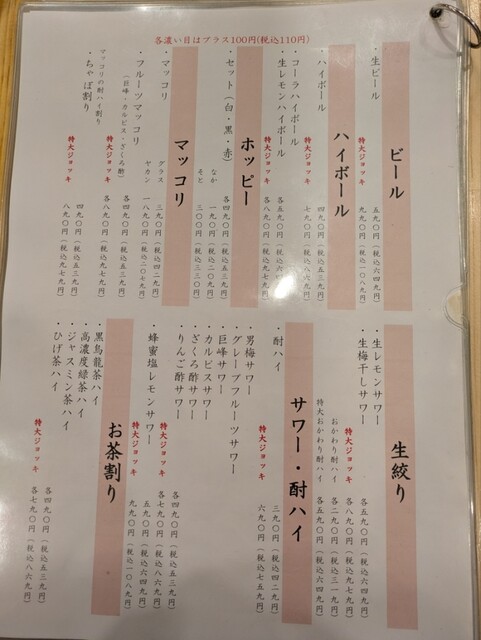 各濃い目はプラス100円(税込110円)
ビール
・生ビール
五九〇円(税込六四九円)
特大ジョッキ
九九〇円(税込一〇八九円)
ハイボール
・ハイボール
四九〇円(税込五三九円)
特大ジョッキ
七九〇円(税込八六九円)
・コーラハイボール
・生レモンハイボール
各五九〇円(税込六四九円)
特大ジョッキ
各八九〇円(税込九七九円)
ホッピー
・セット(白・黒・赤)
各四九〇円(税込五三九円)
なか
一九〇円(税込二〇九円)
そと
三〇〇円(税込三三〇円)
マッコリ
・マッコリ
グラス
三九〇円(税込四二九円)
ヤカン
一八九〇円(税込二〇七九円)
・フルーツマッコリ
(巨峰・カルピス・ざくろ酢)
各四九〇円(税込五三九円)
特大ジョッキ
各八九〇円(税込九七九円)
マッコリの酎ハイ割り
・ちゃぽ割り
四九〇円(税込五三九円)
特大ジョッキ
八九〇円(税込九七九円)
生絞り
・生レモンサワー
・生梅干しサワー
各五九〇円(税込六四九円)
特大ジョッキ
各八九〇円(税込九七九円)
おかわり酎ハイ
各二九〇円(税込三一九円)
特大おかわり酎ハイ
各五九〇円(税込六四九円)
サワー・酎ハイ
・酎ハイ
三九〇円(税込四二九円)
特大ジョッキ
六九〇円(税込七五九円)
・男梅サワー
・グレープフルーツサワー
・巨峰サワー
・カルピスサワー
・ざくろ酢サワー
・りんご酢サワー
各四九〇円(税込五三九円)
特大ジョッキ
各七九〇円(税込八六九円)
・蜂蜜塩レモンサワー
五九〇円(税込六四九円)
特大ジョッキ
九九〇円(税込一〇八九円)
お茶割り
・黒烏龍茶ハイ
・高濃度緑茶ハイ
・ジャスミン茶ハイ
・ひげ茶ハイ
各四九〇円(税込五三九円)
特大ジョッキ
各七九〇円(税込八六九円)